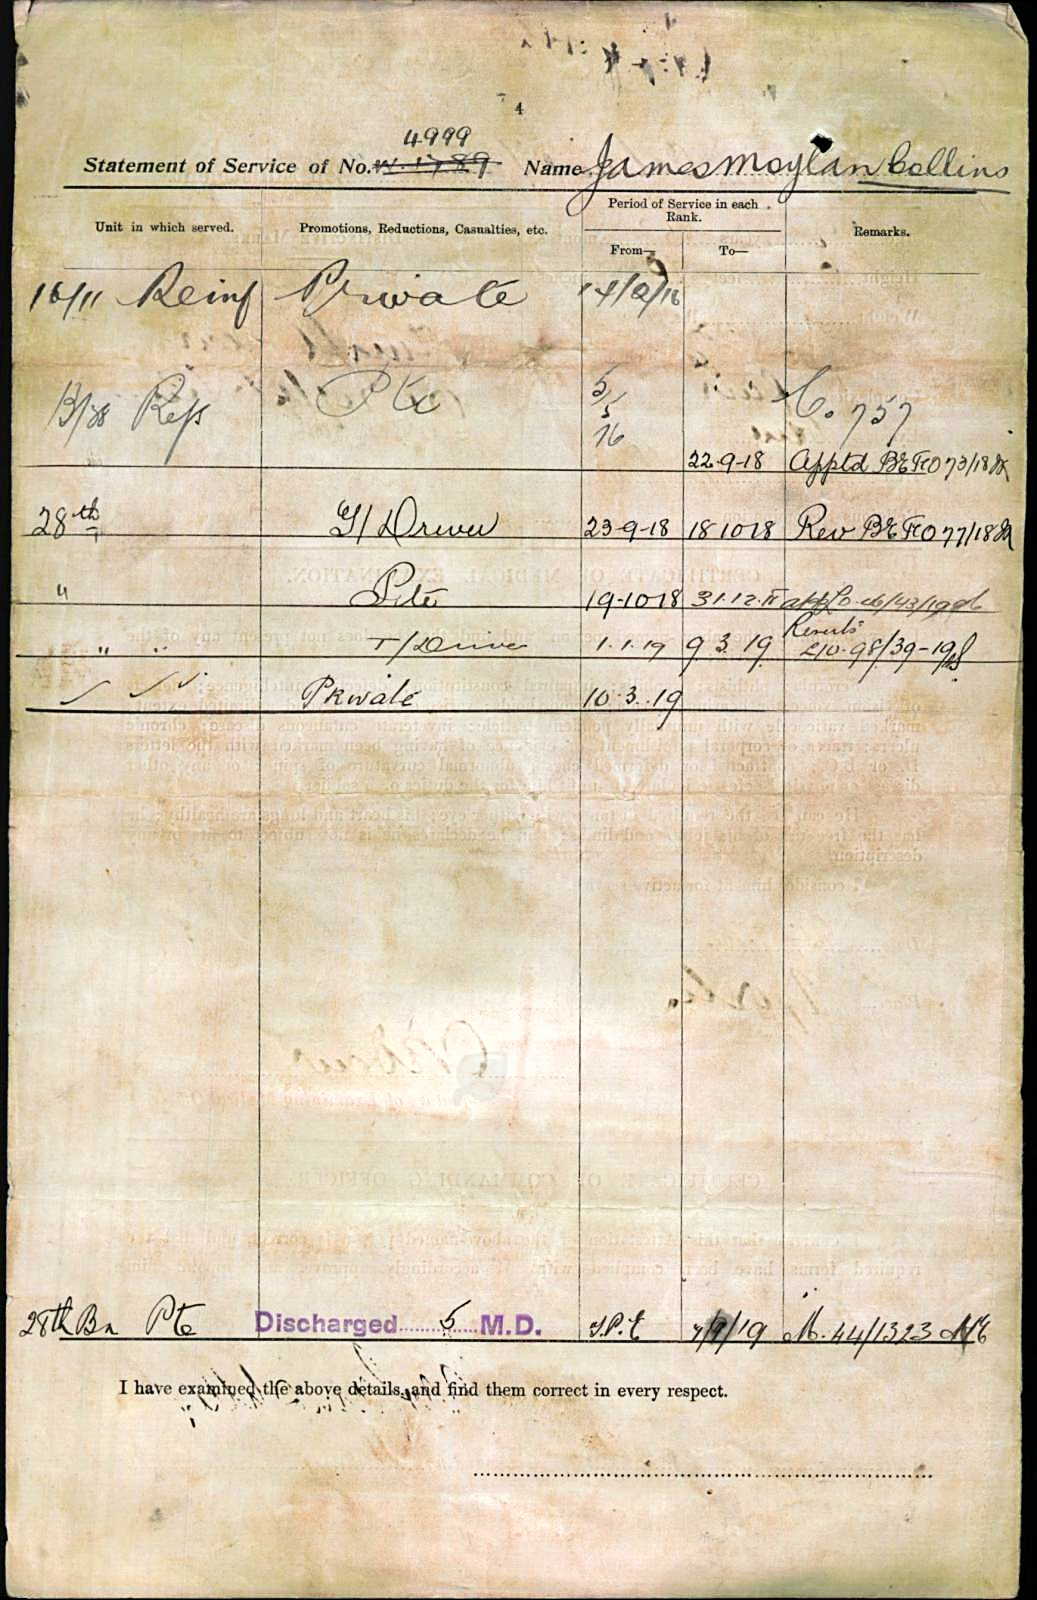 4
4999
Statement of Service of No. W. 1789 Name James Moylan Collins
Unit in which served. Promotions, Reductions, Casualties, etc. Period of Service in each Rank. Remarks.
From— To—
16/11 Reinf Private 14/2/16
13/28 Refs Pte 5/5/16 C. 757
22-9-18 Apptd BEFO 73/18
28th T/ Driver 23-9-18 18 10 18 Rev BEFO 77/18
" Pte 19-10 18 31.12.
" " T/Driver 1.1.19 9 3 19 Reverts 98/39-19
Private 10.3.19
28th Bn Pte Discharged 5 M.D. T.P.E 7/9/19 M.44/1323
I have examined the above details, and find them correct in every respect.